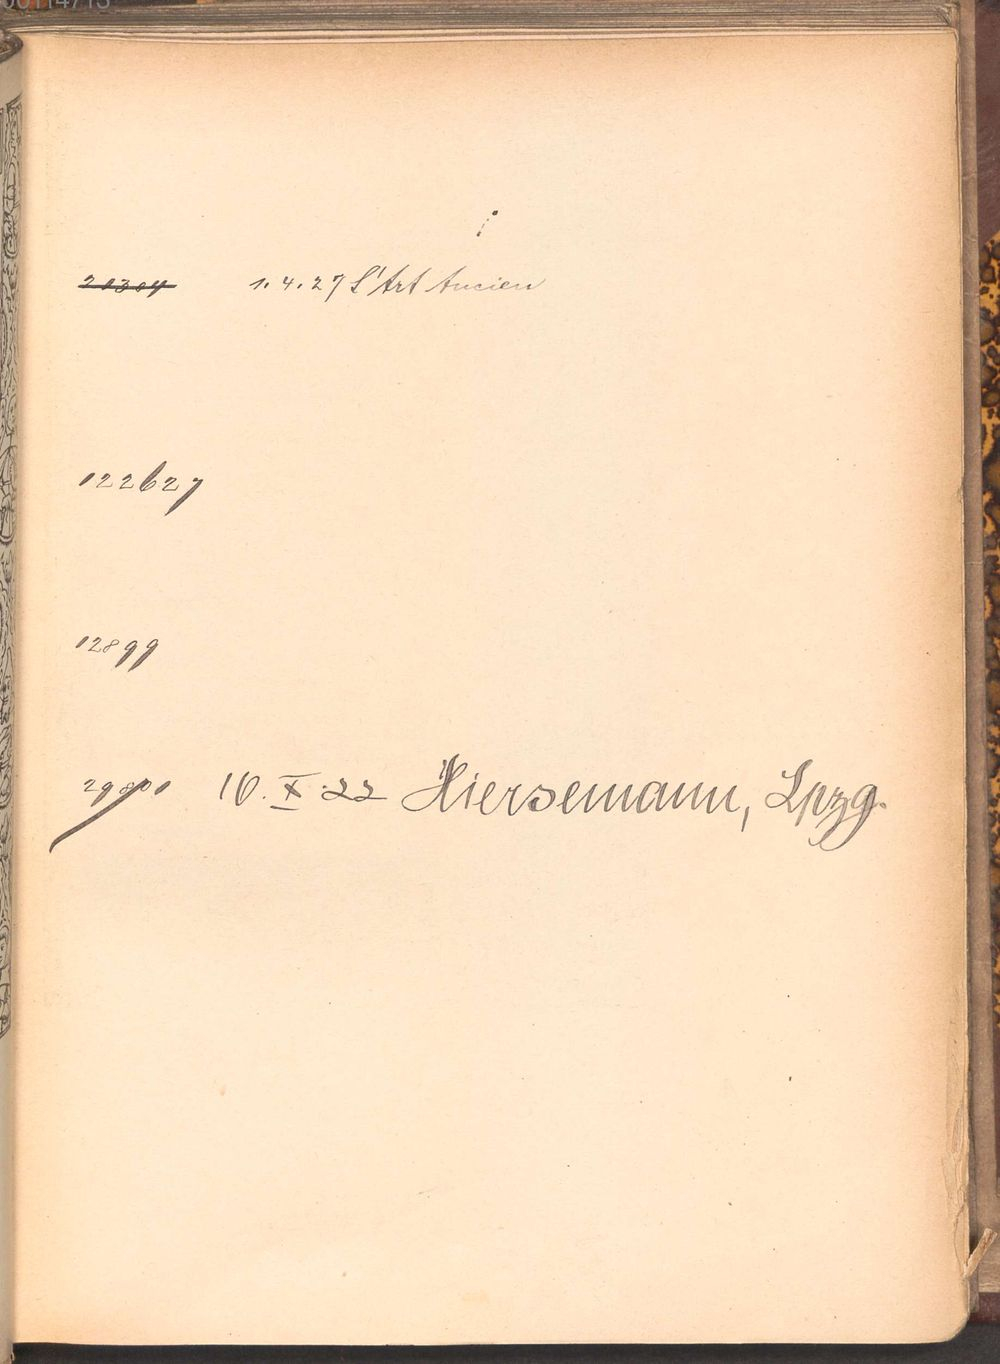 00114713
20304 1.4.27 L'Art Ancien
122627
12899
29800 10.X.22 Hiersemann, Lpzg.